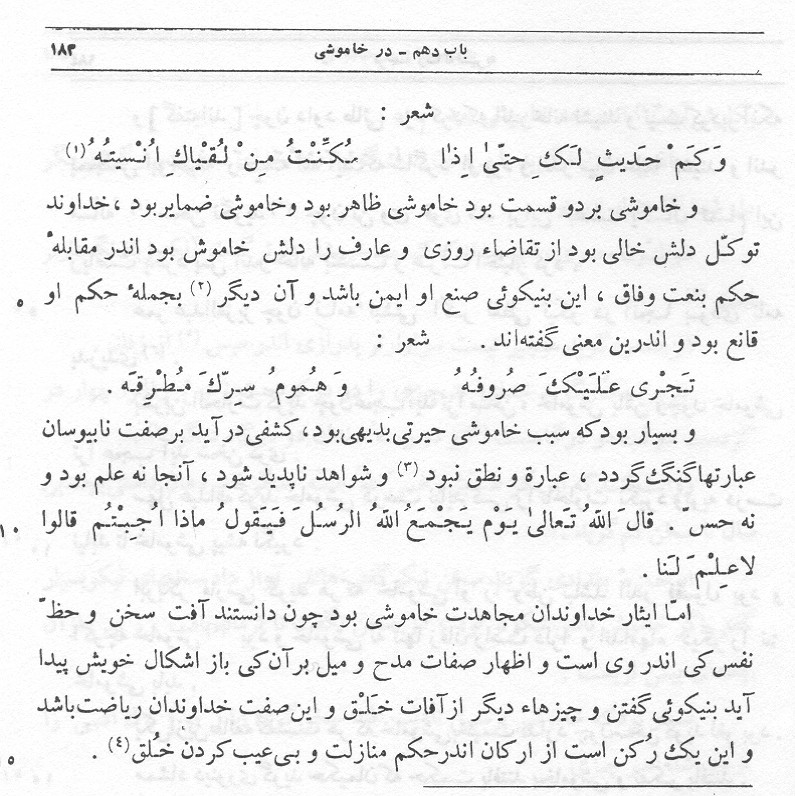 باب دهم - در خاموشی ۱۸۳
شعر :
وَكَمْ حَديثٍ لَكِ حتّىٰ إذا مُكِّنْتُ مِنْ لُقْياكِ اُنْسيتُهُ (۱)
و خاموشی بردو قسمت بود خاموشی ظاهر بود وخاموشی ضمایر بود ، خداوند
توکّل دلش خالی بود از تقاضاء روزی و عارف را دلش خاموش بود اندر مقابلهٔ
حکم بنعت وفاق ، این بنیکوئی صنع او ایمن باشد و آن دیگر (۲) بجملهٔ حکم او ۵
قانع بود و اندرین معنی گفته‌اند . شعر :
تَجْری عَلَيْكَ صُروفُهُ وَ هُمومُ سِرِّكَ مُطْرِقَه .
و بسیار بود که سبب خاموشی حیرتی بدیهی بود ، کشفی درآید بر صفت نابیوسان
عبارتها گنگ گردد ، عبارة و نطق نبود (۳) و شواهد ناپدید شود ، آنجا نه علم بود و
نه حس . قالَ اللهُ تَعالیٰ يَوْمَ يَجْمَعُ اللهُ الرُسُلَ فَيَقولُ ماذا اُجِبْتُم قالوا ۱۰
لاعِلْمَ لَنا .
امّا ایثار خداوندان مجاهدت خاموشی بود چون دانستند آفت سخن و حظّ
نفس کی اندر وی است و اظهار صفات مدح و میل بر آن کی باز اشکال خویش پیدا
آید بنیکوئی گفتن و چیزهاء دیگر از آفات خَلْق و این صفت خداوندان ریاضت باشد
و این یک رُکن است از ارکان اندر حکم منازلت و بی عیب کردن خُلق (۴) . ۱۵